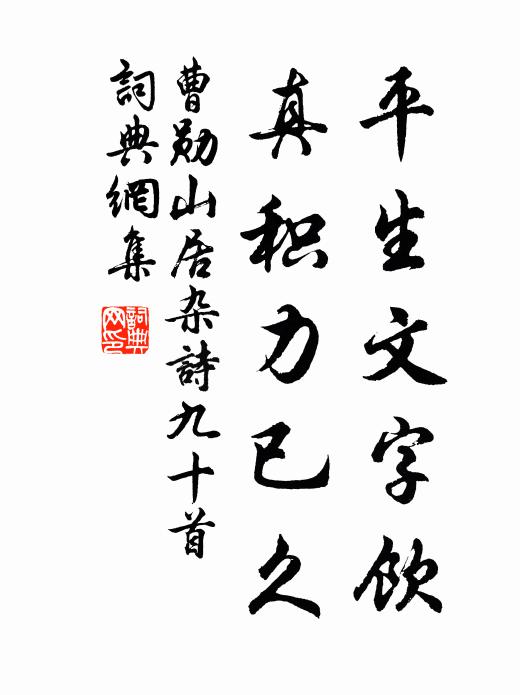 平生文字飲
真积力已久
曹勛山居杂詩九十首
詞典網集
詞典网印